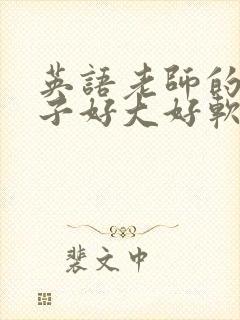 英語老師的
子好大好軟
裴文中